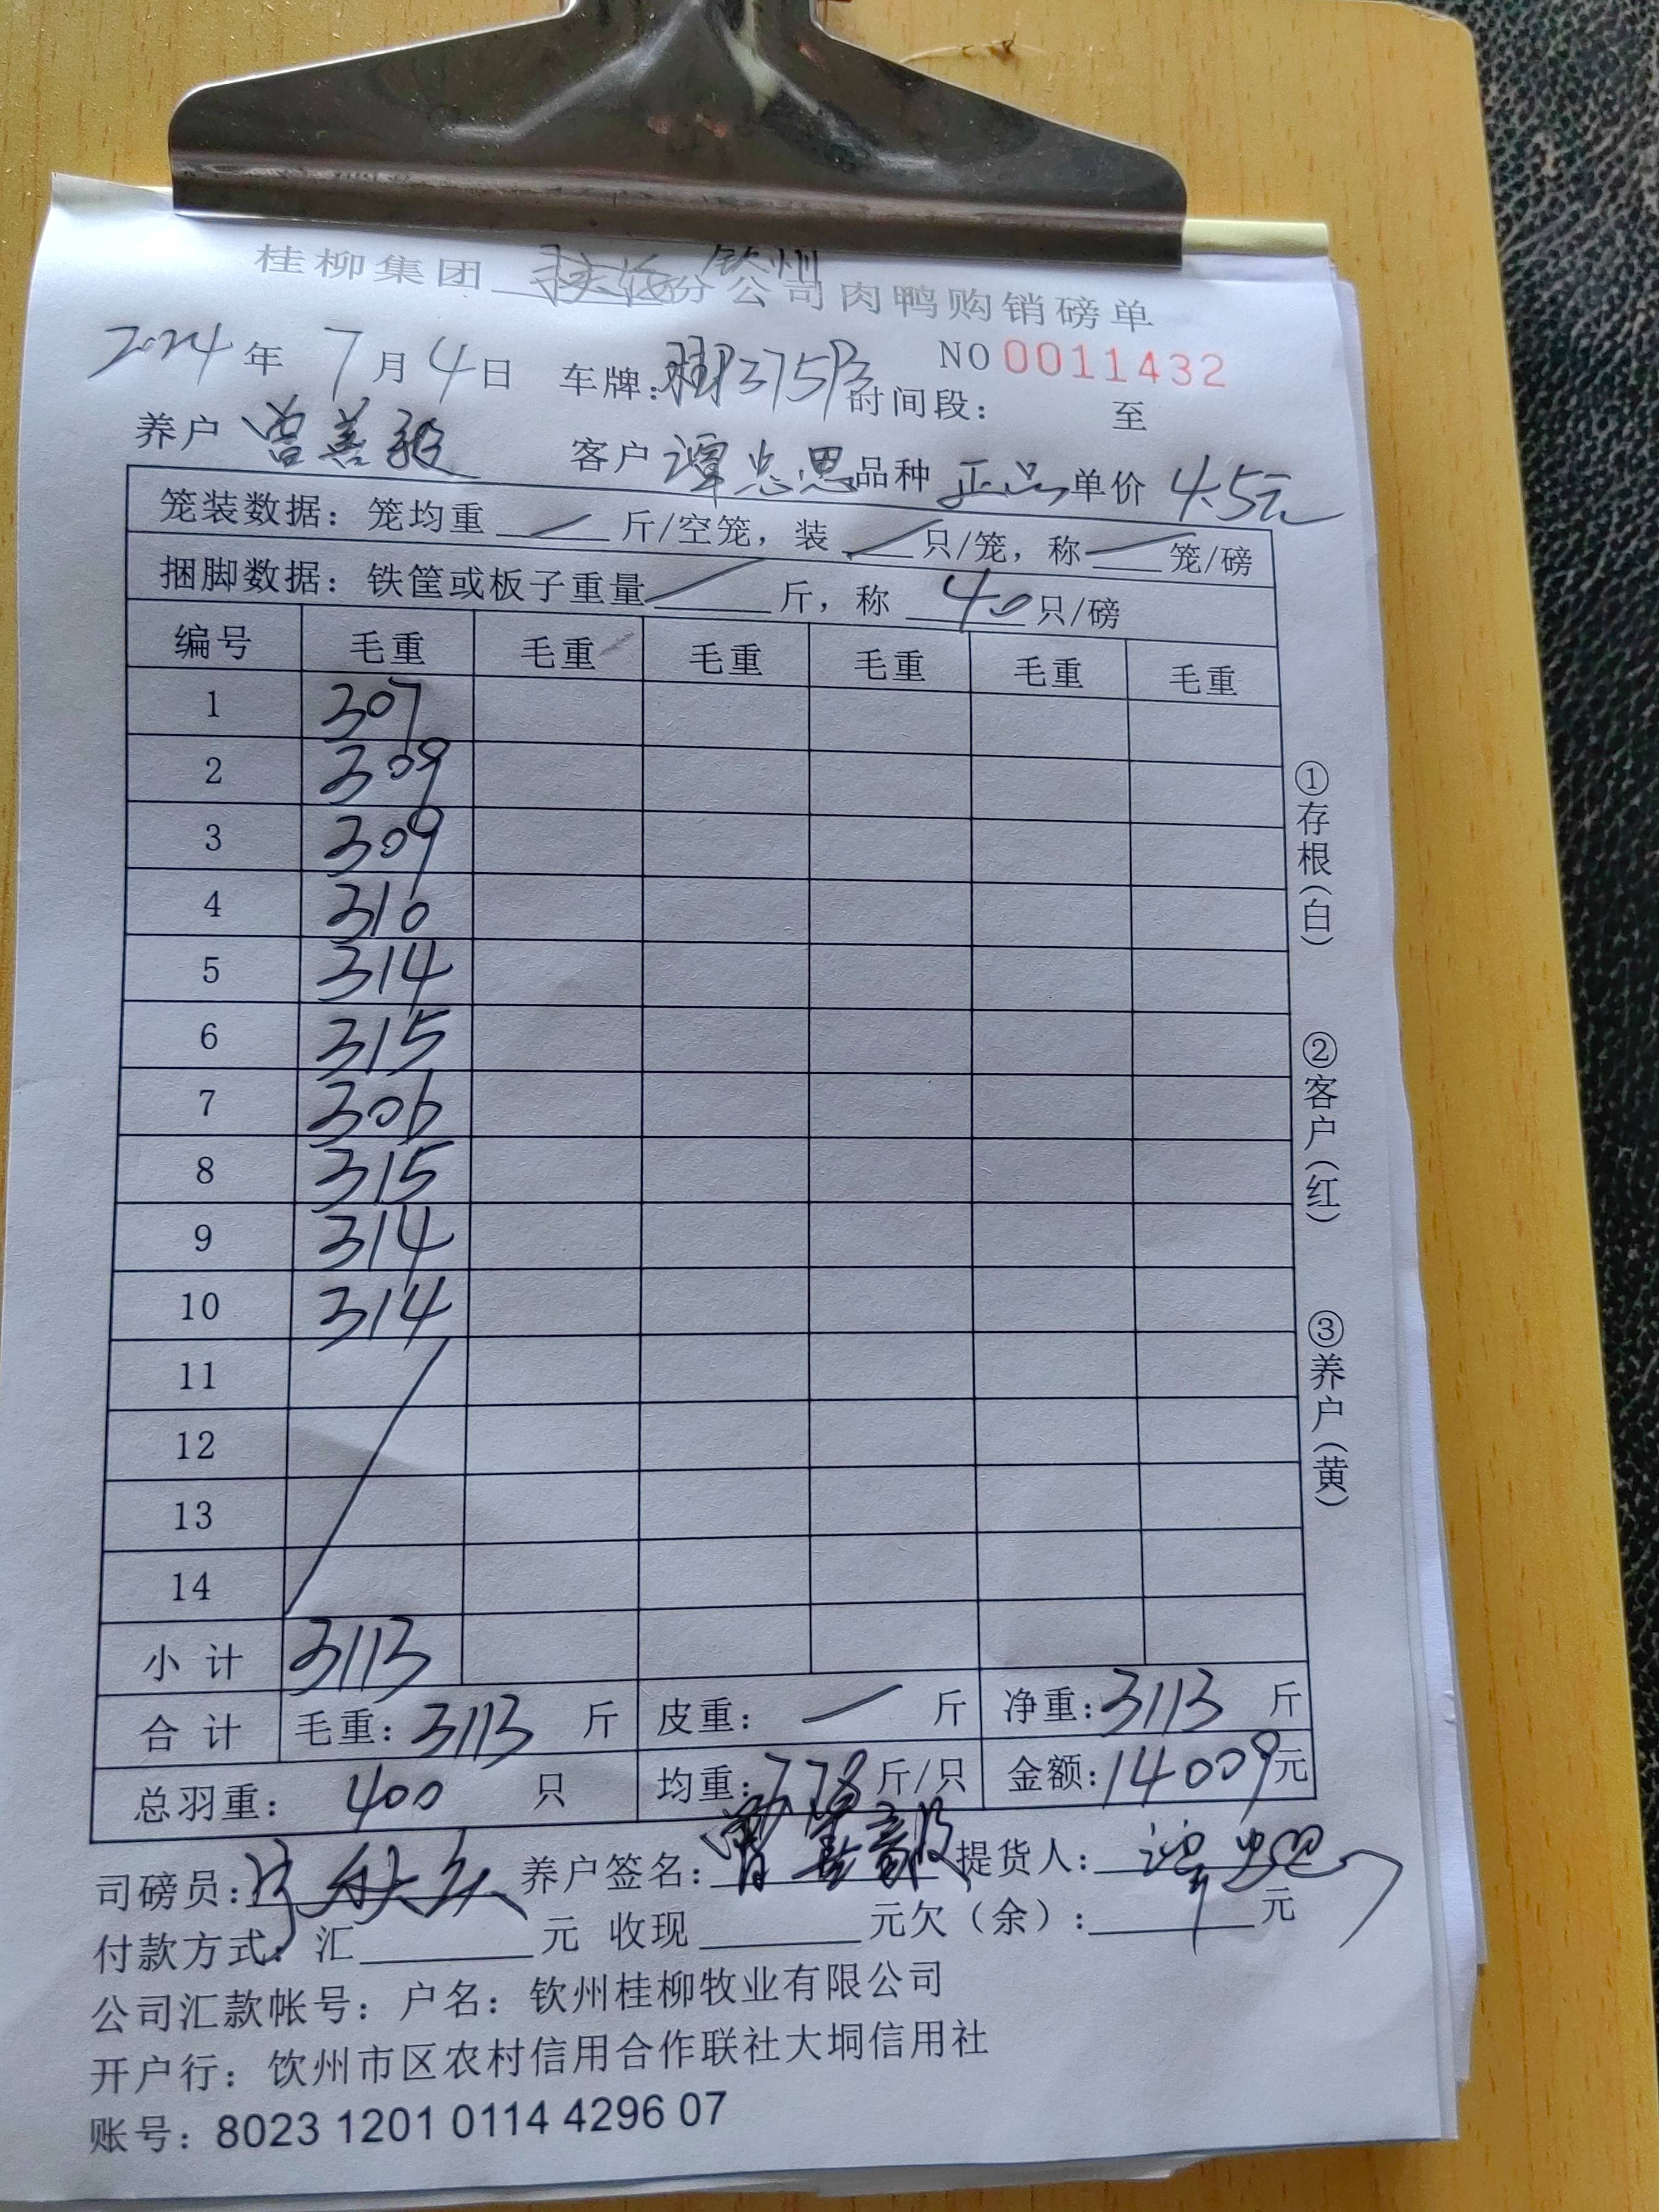 桂柳集团 钦州 分公司肉鸭购销磅单
2024年 7月4日 车牌: 375 NO 0011432
时间段: 至
养户 曾善毅 客户 谭忠思 品种 正品 单价 4.5元
笼装数据：笼均重 / 斤/空笼，装 / 只/笼，称 / 笼/磅
捆脚数据：铁筐或板子重量 / 斤，称 40 只/磅
编号 毛重 毛重 毛重 毛重 毛重 毛重
1 307
2 309
3 309
4 310
5 314
6 315
7 306
8 315
9 314
10 314
11
12
13
14
小计 3113
合计 毛重: 3113 斤 皮重: / 斤 净重: 3113 斤
总羽重: 400 只 均重: 7.78 斤/只 金额: 14009元
司磅员: 养户签名: 曾善毅 提货人: 谭忠思
付款方式: 汇 元 收现 元欠（余）: 元
公司汇款帐号: 户名: 钦州桂柳牧业有限公司
开户行: 钦州市区农村信用合作联社大垌信用社
账号: 8023 1201 0114 4296 07
①存根(白)
②客户(红)
③养户(黄)